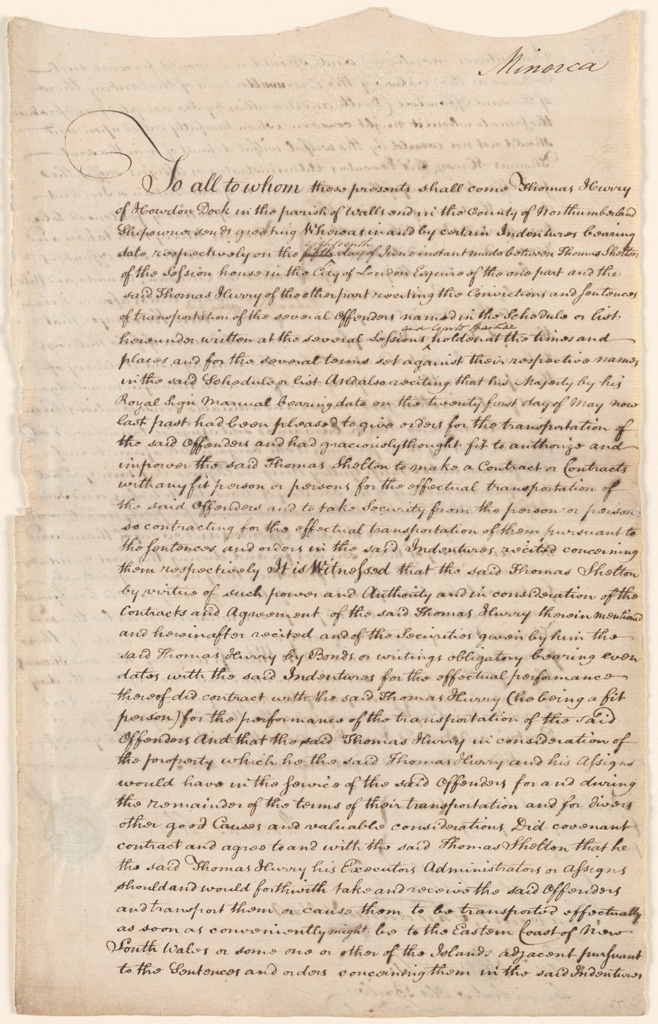 Minorca
To all to whom these presents shall come Thomas Hurry
of Howdon Dock in the parish of Walls end in the County of Northumberland
Shipowner sends greeting Whereas in and by certain Indentures bearing
date respectively on the day of June instant made between Thomas Shelton
of the Session house in the City of London Esquire of the one part and the
said Thomas Hurry of the other part reciting the Convictions and Sentences
of transportation of the several Offenders named in the Schedule or list
and Courts Martial
hereunder written at the several Sessions holden at the times and
places and for the several terms set against their respective names
in the said Schedule or list And also reciting that his Majesty by his
Royal Sign Manual bearing date on the twenty first day of May now
last past had been pleased to give orders for the transportation of
the said Offenders and had graciously thought fit to authorize and
impower the said Thomas Shelton to make a Contract or Contracts
with any fit person or persons for the effectual transportation of
the said Offenders and to take Security from the person or persons
so contracting for the effectual transportation of them pursuant to
the Sentences and orders in the said Indentures recited concerning
them respectively It is Witnessed that the said Thomas Shelton
by virtue of such power and Authority and in consideration of the
Contracts and Agreement of the said Thomas Hurry therein mentioned
and hereinafter recited and of the Securities given by him the
said Thomas Hurry by Bonds or writings obligatory bearing even
dates with the said Indentures for the effectual performance
thereof did contract with the said Thomas Hurry (he being a fit
person) for the performance of the transportation of the said
Offenders And that the said Thomas Hurry in consideration of
the property which he the said Thomas Hurry and his Assigns
would have in the Service of the said Offenders for and during
the remainder of the terms of their transportation and for divers
other good Causes and valuable considerations Did covenant
contract and agree to and with the said Thomas Shelton that he
the said Thomas Hurry his Executors Administrators or Assigns
should and would forthwith take and receive the said Offenders
and transport them or cause them to be transported effectually
as soon as conveniently might be to the Eastern Coast of New
South Wales or some one or other of the Islands adjacent pursuant
to the Sentences and orders concerning them in the said Indentures